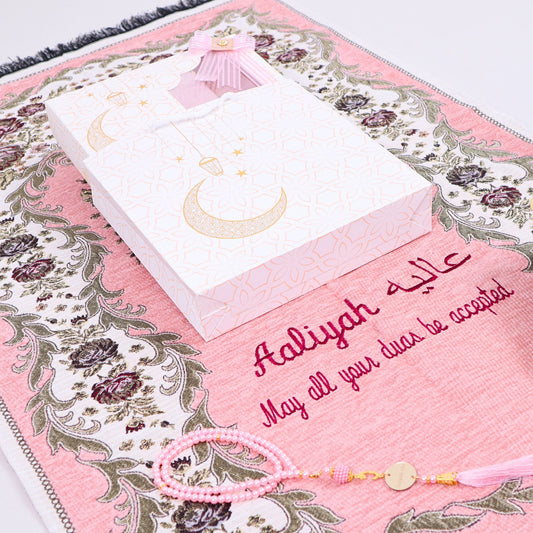 Aaliyah عاليه
May all your duas be accepted